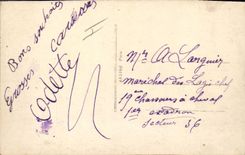 Bons souhaits
Grosses Caresses
Odette
Mr A Larquier
Maréchal des Logis chef
19e Chasseurs à cheval
1er escadron
Secteur 36